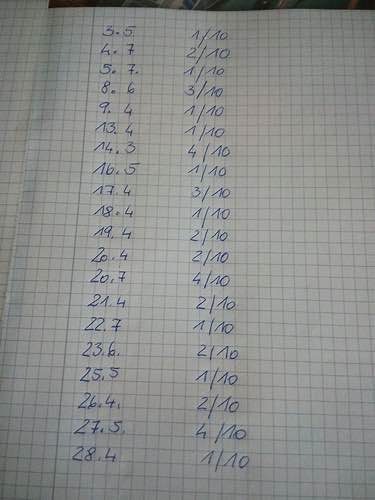 3.5 1/10
4.7 2/10
5.7. 1/10
8.6 3/10
9.4 1/10
13.4 1/10
14.3 4/10
16.5 1/10
17.4 3/10
18.4 1/10
19.4 2/10
20.4 2/10
20.7 4/10
21.4 2/10
22.7 1/10
23.6. 2/10
25.5 1/10
26.4. 2/10
27.5. 4/10
28.4 1/10